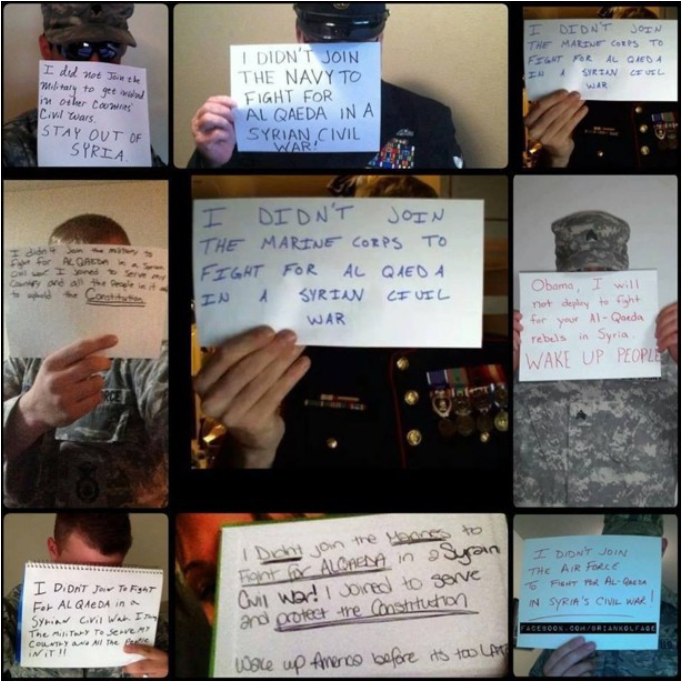 I did not Join the
Military to get involved
in other Countries'
Civil Wars.
STAY OUT OF
SYRIA.
I DIDN'T JOIN
THE NAVY TO
FIGHT FOR
AL QAEDA IN A
SYRIAN CIVIL
WAR!
I DIDN'T JOIN
THE MARINE CORPS TO
FIGHT FOR AL QAEDA
IN A SYRIAN CIVIL
WAR
I didn't Join the military to
fight for ALQAEDA in a Syrian
Civil war. I Joined to Serve my
Country and all the People in it and
to uphold the Constitution
I DIDN'T JOIN
THE MARINE CORPS TO
FIGHT FOR AL QAEDA
IN A SYRIAN CIVIL
WAR
Obama, I will
not deploy to fight
for your Al-Qaeda
rebels in Syria.
WAKE UP PEOPLE
I DIDN'T JOIN TO FIGHT
FOR AL QAEDA IN a
Syrian Civil War. I
THE MILITARY TO SERVE MY
COUNTRY AND All THE PEOPLE
IN IT!!
I Didn't join the Marines to
Fight for ALQAEDA in a Syrian
Civil War! I Joined to serve
and protect the Constitution
Wake up America before its too LATE
I DIDN'T JOIN
THE AIR FORCE
TO FIGHT FOR AL-QAEDA
IN SYRIA'S CIVIL WAR!
FACEBOOK.COM/BRIANKOLFAGE